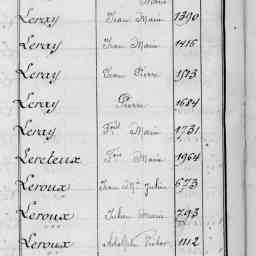 Marie
Leray Jean Marie 1390
Leray Jean Marie 1416
Leray Jean Pierre 1513
Leray Pierre 1684
Leray Fçois Marie 1731
Lereteux Fçois Marie 1964
Leroux Jean Mie Julien 673
Leroux Julien Marie 793
Leroux Adolphe 1112